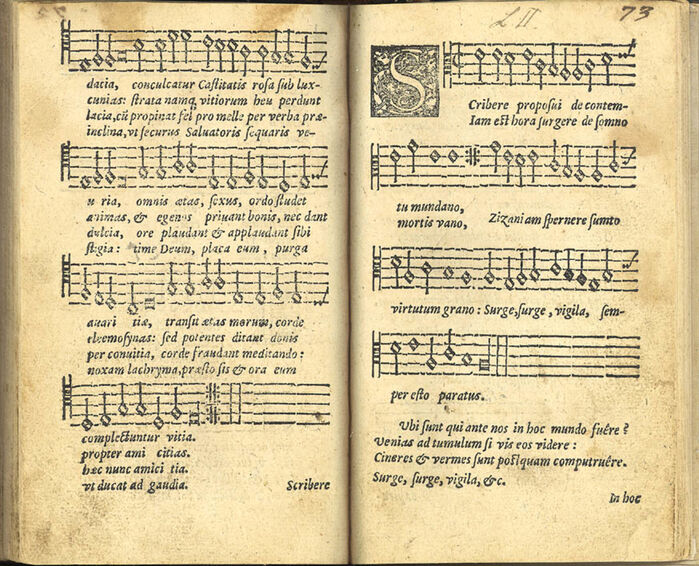 datia, conculcatur Castitatis rosa sub lux-
cunias: strata namq; vitiorum heu perdunt
lacia, cū propinat fel pro melle per verba præ-
inclina, vt securus Saluatoris sequaris ve-
u ria, omnis ætas, sexus, ordo studet
animas, & egenos priuant bonis, nec dant
dulcia, ore plaudant & applaudant sibi
stigia: time Deum, placa eum, purga
auari tiæ, transit ætas morum, corde
eleemosynas: sed potentes ditant donis
per conuitia, corde fraudant meditando:
noxam lachryma, præsto sis & ora eum
complectuntur vitia.
propter ami citias.
hæc nunc amici tia.
vt ducat ad gaudia. Scribere
L II 73
SCribere proposui de contem-
Iam est hora surgere de somno
tu mundano,
mortis vano, Zizaniam spernere sumto
virtutum grano: Surge, surge, vigila, sem-
per esto paratus.
Vbi sunt qui ante nos in hoc mundo fuêre?
Venias ad tumulum si vis eos videre:
Cineres & vermes sunt postquam computruêre.
Surge, surge, vigila, &c.
In hoc